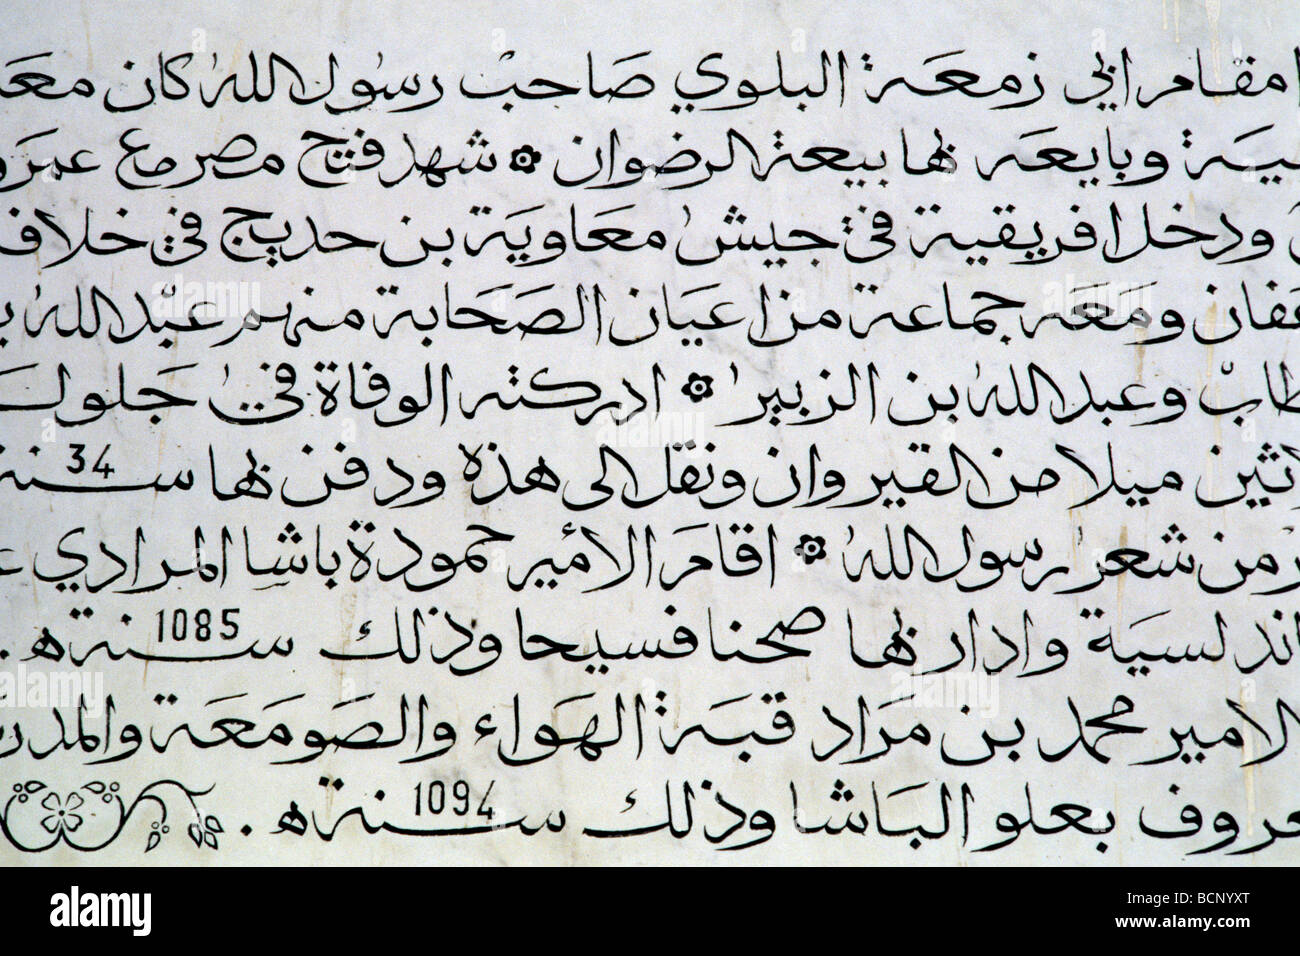 مقام ابي زمعة البلوي صاحب رسول الله كان معه
وبايعه بها بيعة الرضوان ۞ شهد فتح مصر مع عمرو
ودخل افريقية في جيش معاوية بن حديج في خلاف
عفان ومعه جماعة من اعيان الصحابة منهم عبد الله ب
طاب وعبد الله بن الزبير ۞ ادركته الوفاة في جلول
اثين ميلا من القيروان ونقل الى هذه ودفن بها سنة 34
من شعر رسول الله ۞ اقام الأمير حمودة باشا المرادي
اندلسية وادار بها صحنا فسيحا وذلك سنة 1085 ه.
الامير محمد بن مراد قبة الهواء والصومعة والمدر
عروف بعلو الباشا وذلك سنة 1094 ه.
alamy
Image ID: BCNYXT
www.alamy.com